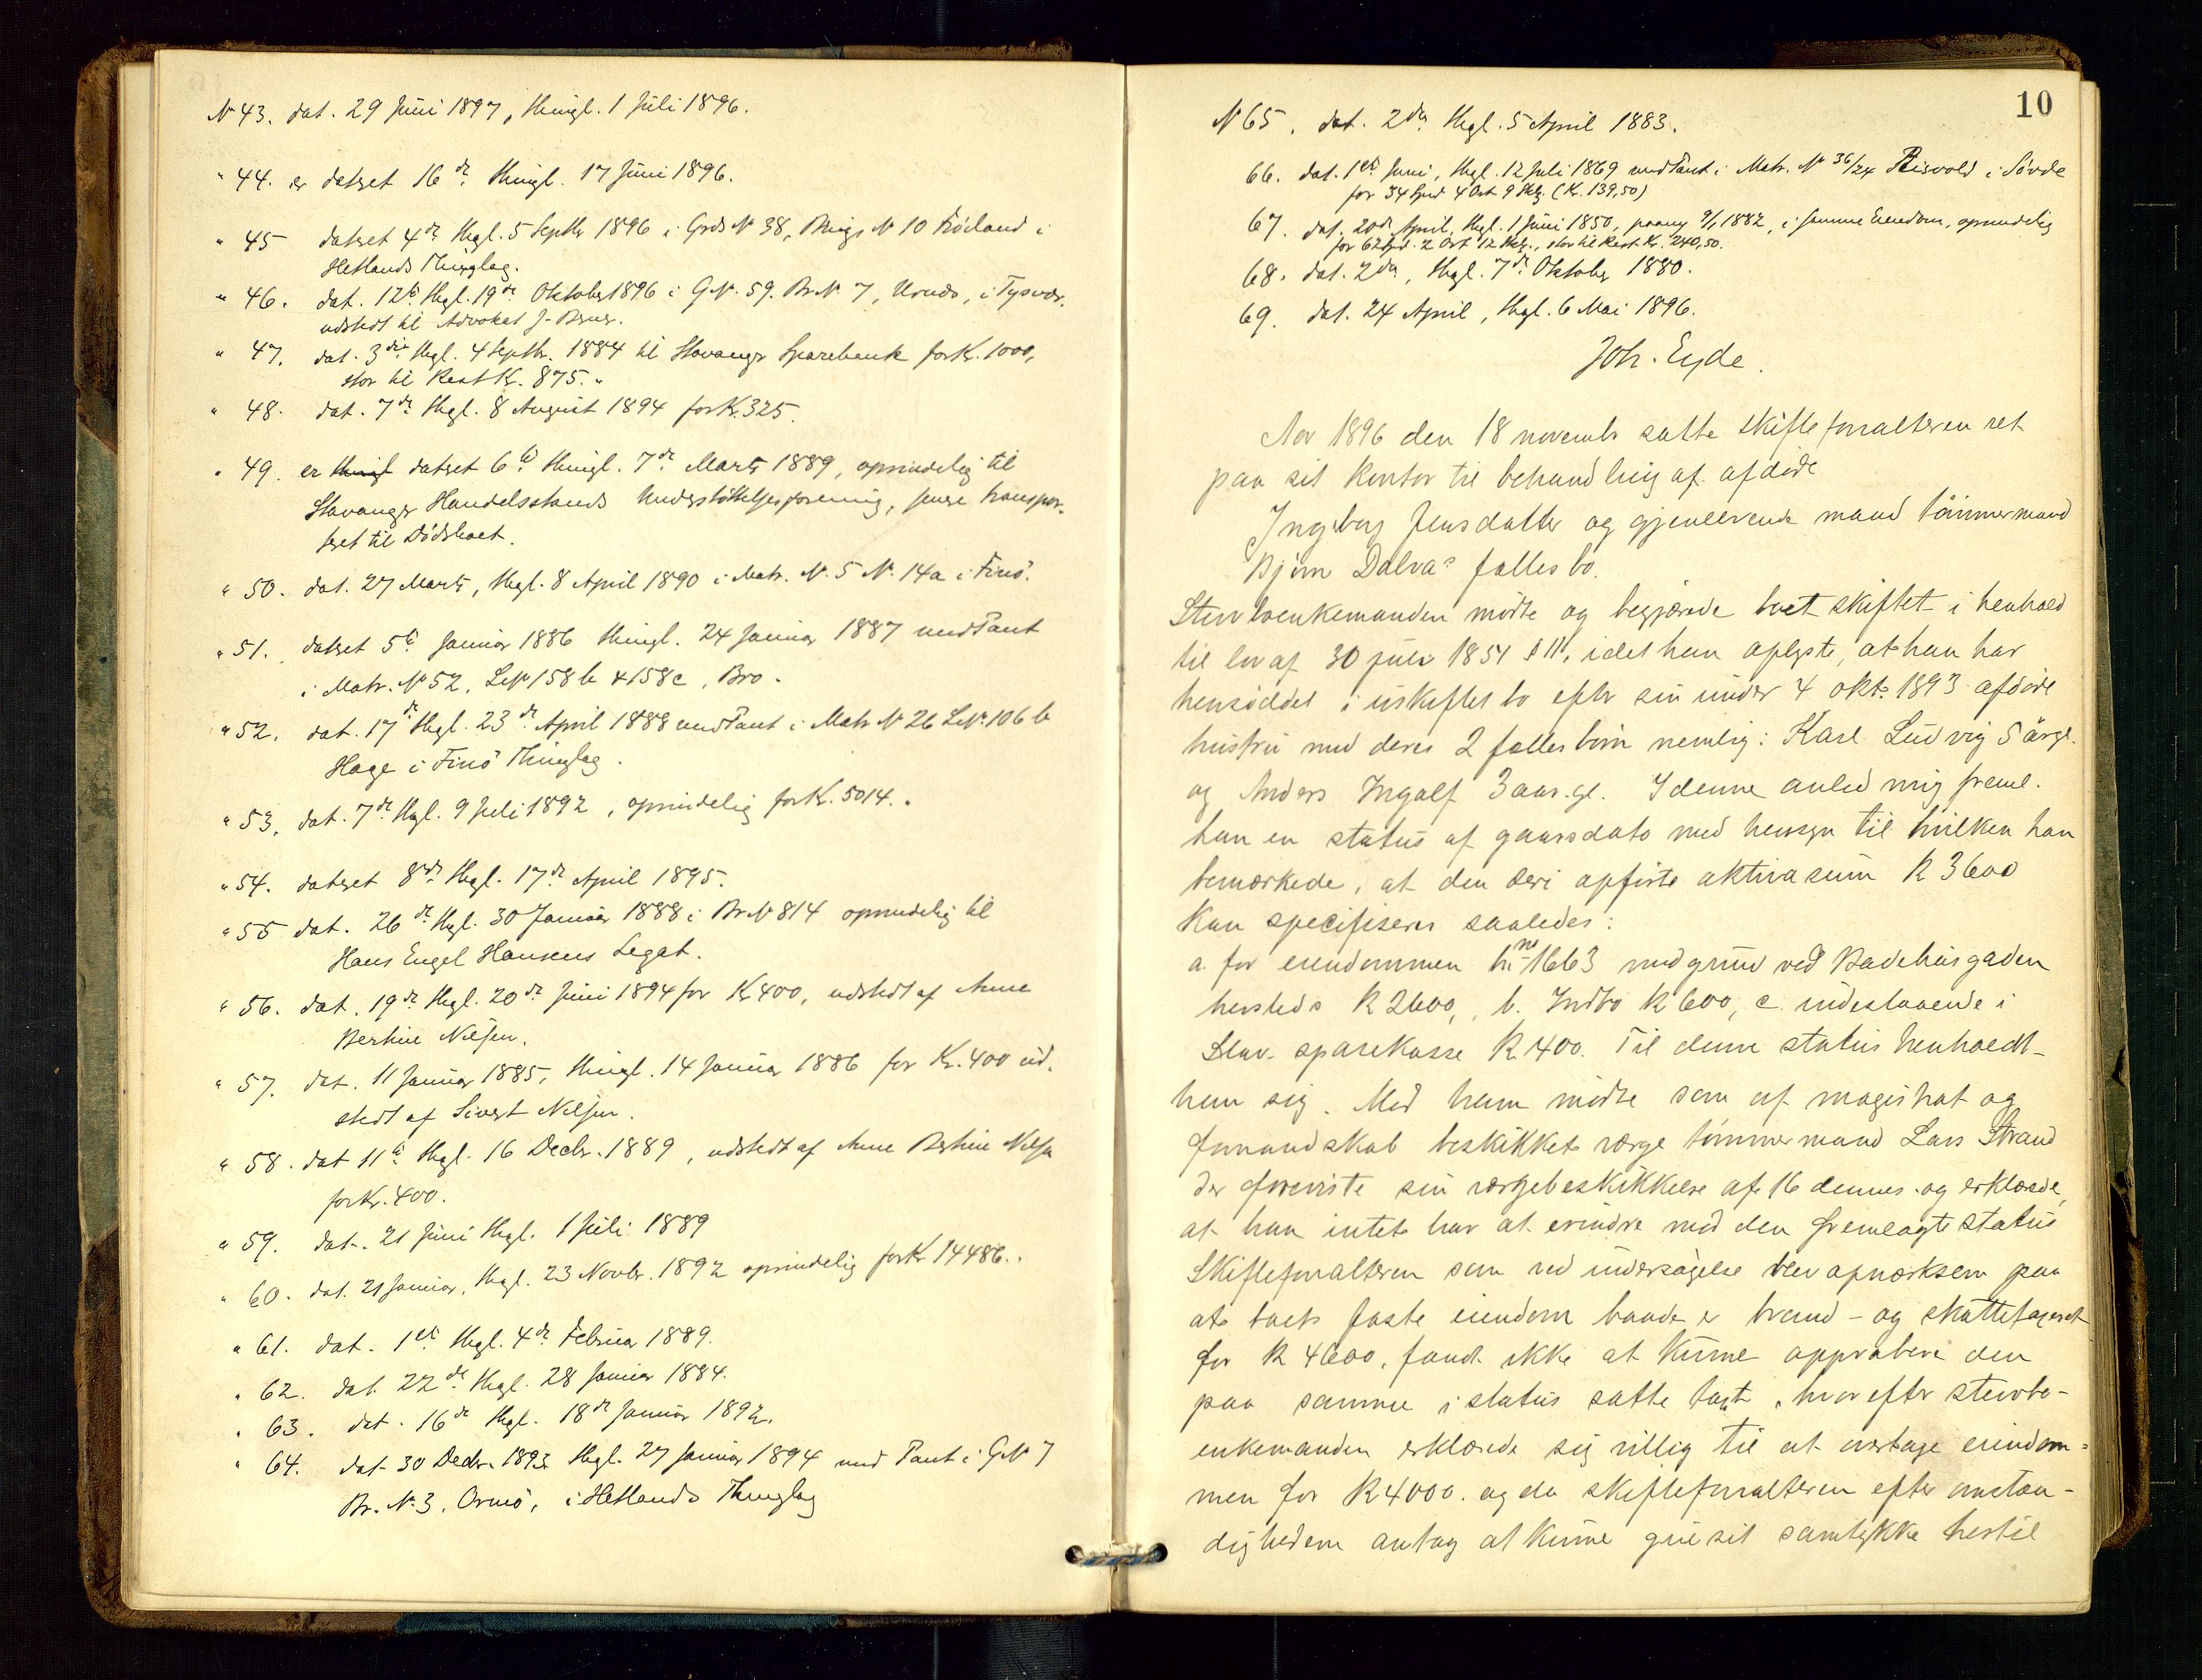 N 43. dat. 29 Juni 1897, thingl. 1 Juli 1896.
" 44. er datert 16de thingl. 17 Juni 1896.
" 45 datert 4de thgl. 5 Septbr 1896 i Grds N 38, Brugs N 10 Fröiland i
Hetlands Thinglag.
" 46. dat. 12te thgl. 19de Oktober 1896 i GN. 59. Br N. 7, i Tysvær,
udstedt til Advokat J.
" 47. dat. 3die thgl. 4 Septbr. 1884 til Stavanger Sparebank for Kr. 1000,
stor til Rest Kr. 875. "
" 48. dat. 7de thgl. 8 August 1894 for Kr. 325.
" 49. er thingl datert 6te thingl. 7de Marts 1889, oprindelig til
Stavanger Handelsstands Understöttelsesforening, senere transpor-
teret til Dödsboet.
" 50. dat. 27 Marts, thgl. 8 April 1890 i Matr. N. 5 N. 14a i Finö.
" 51. datert 5te Januar 1886 thingl. 24 Januar 1887 med Pant
i Matr. N 52, LN 158 b & 158c, Bro.
" 52. dat. 17de thgl. 23de April 1888 med Pant i Matr N 26 LN. 106 b
Hage i Finö Thinglag.
" 53. dat. 7de thgl. 9 Juli 1892, oprindelig for Kr. 5014. "
" 54. datert 8de thgl. 17de April 1895.
" 55 dat. 26de thgl. 30 Januar 1888 i Br N 814 oprindelig til
Hans Engel Hansens Legat.
" 56. dat. 19de thgl. 20de Juni 1894 for Kr 400, udstedt af Anne
Bertine Nilsen.
" 57. dat. 11 Januar 1885, thingl. 14 Januar 1886 for Kr. 400 ud-
stedt af Sivert Nilsen.
" 58. dat 11te thgl. 16 Decbr. 1889, udstedt af Anne Bertine Nilsen
for Kr. 400.
" 59. dat. 21 Juni thgl. 1 Juli 1889
" 60. dat. 21 Januar, thgl. 23 Novbr. 1892 oprindelig for Kr 14486. "
" 61. dat. 1ste thgl. 4de Februar 1889.
" 62. dat. 22de thgl. 28 Januar 1884.
" 63. dat. 16de thgl. 18de Januar 1892.
" 64. dat 30 Decbr. 1893 thgl. 27 Januar 1894 med Pant i GN 7
Br. N. 3, Ormö, i Hetlands Thinglag
10
N 65. dat. 2den thgl. 5 April 1883.
66. dat. 1ste Juni, thgl. 12 Juli 1869 med Pant i Matr. N 36/24 Risvold i Søvde
for 34 Spd 4 Ort 9 Skg. (Kr. 139,50)
67. dat. 20de April, thgl. 1 Juni 1850, paany 9/1 1882, i samme Eiendom, oprindelig
for 62 Spd. 2 Ort 12 Skg., stor til Rest Kr. 240,50.
68. dat. 2den, thgl. 7de Oktober 1880.
69. dat. 24 April, thgl. 6 Mai 1896.
Joh. Eyde.
Aar 1896 den 18 novembr satte skifteforvalteren ret
paa sit kontor til behandling af afdøde
Ingeborg Jensdatter og gjenlevende mand tömmermand
Bjørn Dalvas fælles bo.
Stervboenkemanden mødte og begjærede boet skiftet i henhold
til lov af 30 juli 1851 § 11, idet han oplyste, at han har
hensiddet i uskiftet bo efter sin under 4 okt. 1893 afdøde
hustru med deres 2 fælles børn nemlig: Karl Ludvig 5 årgl.
og Anders Ingolf 3 aar.gl. I denne anledning freml.
han en status af gaarsdato med hensyn til hvilken han
bemærkede, at den deri opførte aktivasum K 3600
kan specifiseres saaledes:
a. for eiendommen hs no 1663 med grund ved Badehusgaden
hersteds K 2600, b. Indbo K 600, c. indestaaende i
Stav. sparekasse K 400. Til denne status henholdt
han sig. Med ham mødte som af magistrat og
formandskab beskikket værge tömmermand Lars Strand
der foreviste sin værgebeskikkelse af 16 dennes og erklærede,
at han intet har at erindre mod den fremlagte status
Skifteforvalteren som ved undersøgelse blev opmerksom paa
at boets faste eiendom baade er brand- og skattetaxeret
for K 4600, fandt ikke at kunne approbere den
paa samme i status satte taxt, hvorefter stervbo-
enkemanden erklærede sig villig til at overtage eiendom-
men for K 4000. og da skifteforvalteren efter omstæn-
dighedene antog at kunne give sit samtykke hertil